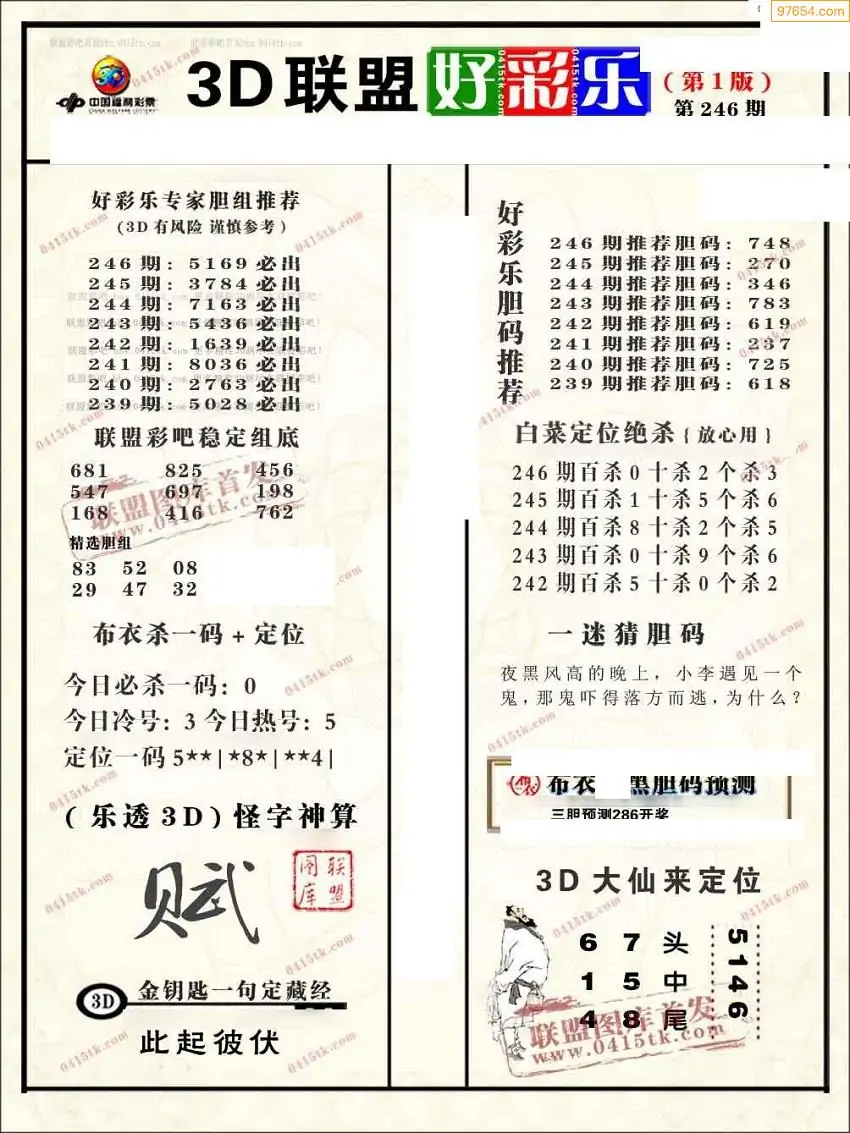 97654.com
联盟彩吧首发bbs.0415tk.com
中国福利彩票
CHINA WELFARE LOTTERY
3D联盟好彩乐
(第1版)
第246期
好彩乐专家胆组推荐
(3D有风险 谨慎参考)
246期: 5169必出
245期: 3784必出
244期: 7163必出
243期: 5436必出
242期: 1639必出
241期: 8036必出
240期: 2763必出
239期: 5028必出
联盟彩吧稳定组底
681 825 456
547 697 198
168 416 762
联盟图库首发
www.0415tk.com
精选胆组
83 52 08
29 47 32
布衣杀一码+定位
今日必杀一码: 0
今日冷号: 3 今日热号: 5
定位一码 5**|*8*|**4|
(乐透3D)怪字神算
赋
联盟图库
3D
金钥匙一句定藏经
此起彼伏
好彩乐胆码推荐
246期推荐胆码: 748
245期推荐胆码: 270
244期推荐胆码: 346
243期推荐胆码: 783
242期推荐胆码: 619
241期推荐胆码: 237
240期推荐胆码: 725
239期推荐胆码: 618
白菜定位绝杀{放心用}
246期百杀0十杀2个杀3
245期百杀1十杀5个杀6
244期百杀8十杀2个杀5
243期百杀0十杀9个杀6
242期百杀5十杀0个杀2
一迷猜胆码
夜黑风高的晚上, 小李遇见一个
鬼, 那鬼吓得落方而逃, 为什么?
布衣 黑胆码预测
三胆预测286开奖
3D大仙来定位
6 7 头
1 5 中
4 8 尾
5146
联盟图库首发
www.0415tk.com
0415tk.com